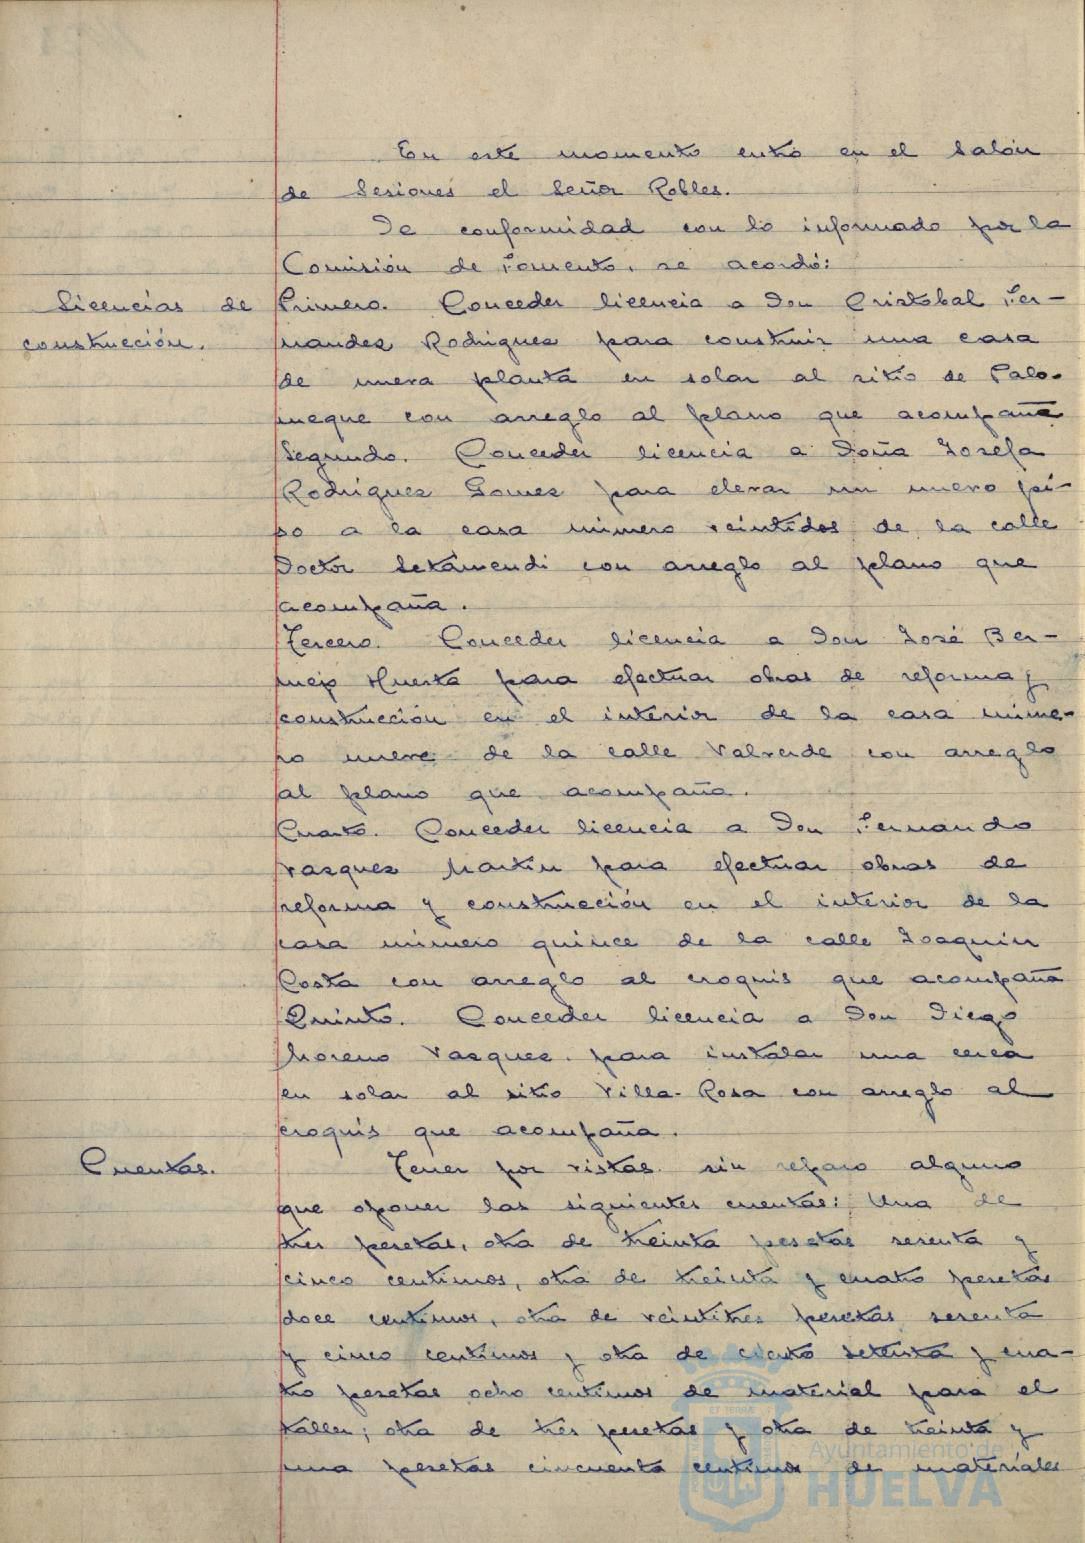 En este momento entró en el Salón
de Sesiones el Señor Robles.
De conformidad con lo informado por la
Comisión de Fomento, se acordó:
Licencias de
construcción.
Primero. Conceder licencia a Don Cristobal Fer-
nandez Rodriguez para construir una casa
de nueva planta en solar al sitio de Palo-
meque con arreglo al plano que acompaña
Segundo. Conceder licencia a Doña Josefa
Rodriguez Gomez para elevar un nuevo pi-
so a la casa número veintidos de la calle
Doctor Letamendi con arreglo al plano que
acompaña.
Tercero. Conceder licencia a Don José Ber-
mejo Huerta para efectuar obras de reforma y
construcción en el interior de la casa núme-
ro nueve de la calle Valverde con arreglo
al plano que acompaña.
Cuarto. Conceder licencia a Don Fernando
Vazquez Martin para efectuar obras de
reforma y construcción en el interior de la
casa número quince de la calle Joaquin
Costa con arreglo al croquis que acompaña
Quinto. Conceder licencia a Don Diego
Moreno Vazquez para instalar una cerca
en solar al sitio Villa-Rosa con arreglo al
croquis que acompaña.
Cuentas.
Tener por vistas sin reparo alguno
que oponer las siguientes cuentas: Una de
tres pesetas, otra de treinta pesetas sesenta y
cinco centimos, otra de treinta y cuatro pesetas
doce centimos, otra de veintitres pesetas sesenta
y cinco centimos y otra de ciento setenta y cua-
tro pesetas ocho centimos de material para el
taller; otra de tres pesetas y otra de treinta y
una pesetas cincuenta centimos de materiales
Ayuntamiento de
HUELVA